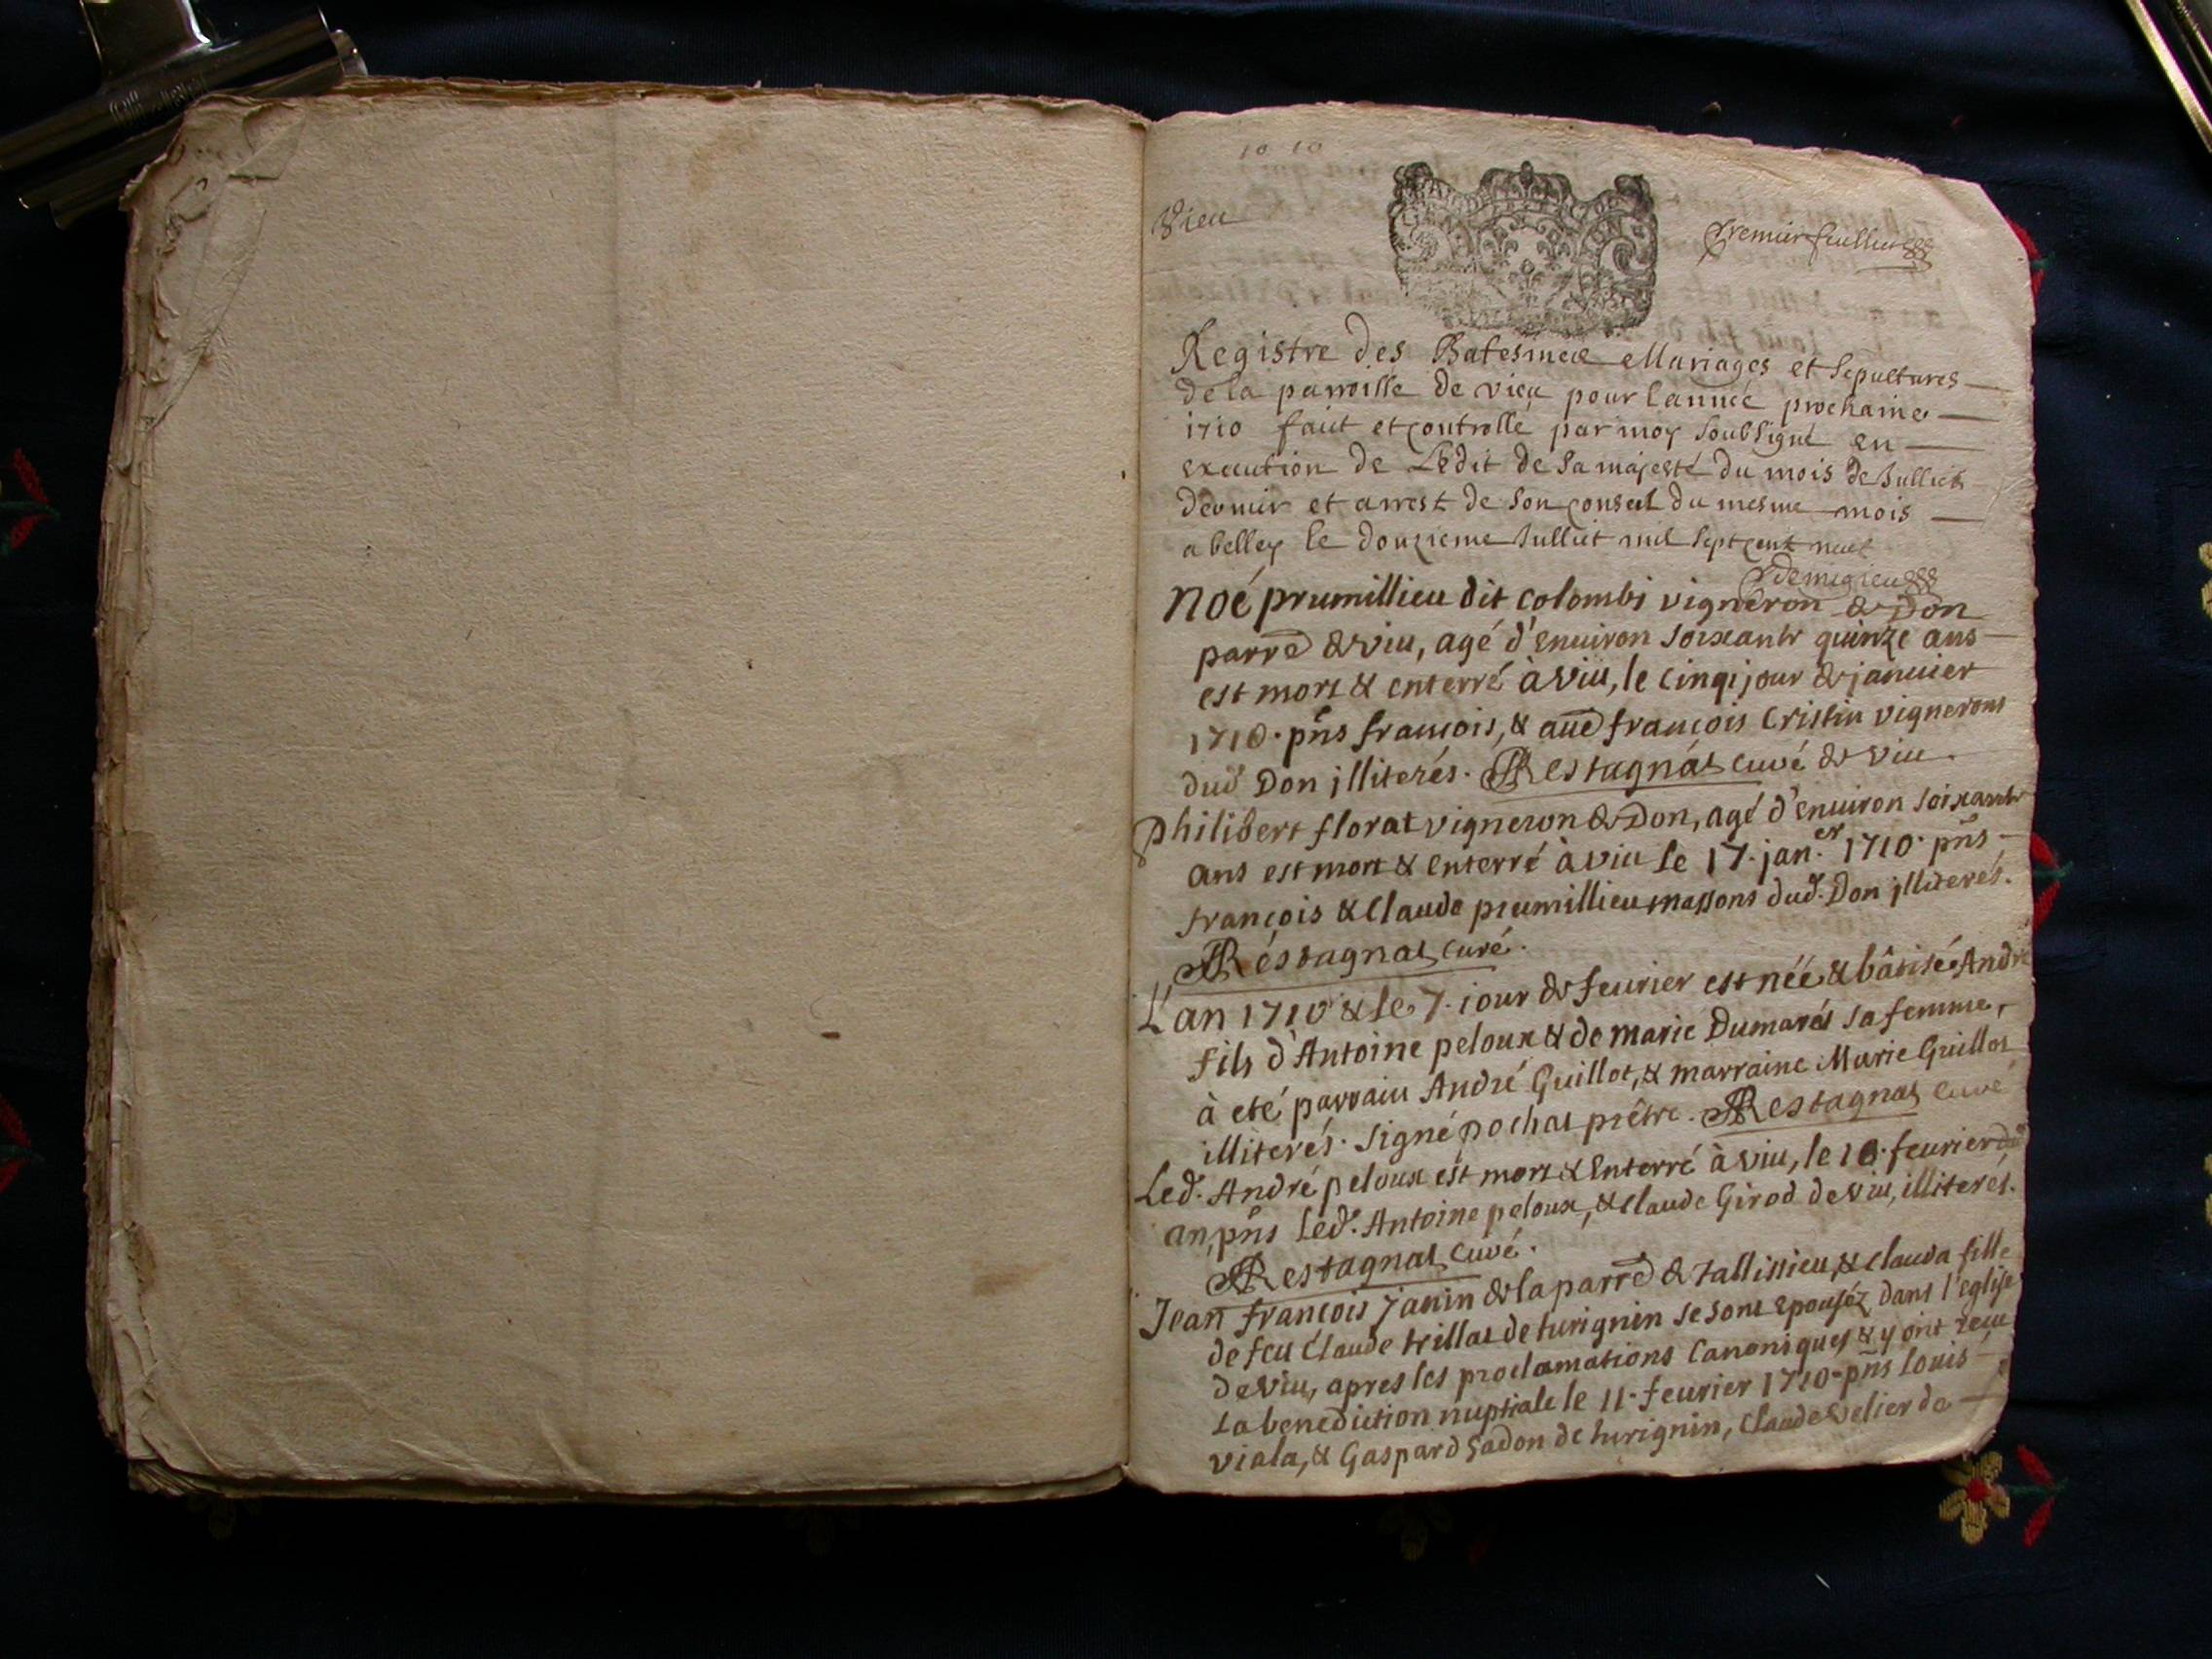 10 10
Vieu
Premier feuillet
Registre des Batesmes Mariages et sepultures
de la parroisse de vieu pour l'année prochaine
1710 fait et controllé par moy soubsigné en
execution de L'edit de sa majesté du mois de Julliet
dernier et arrest de son conseil du mesme mois
a belley le douzieme Julliet mil sept cent neuf
Demigieu
Noé prumillieu dit colombi vigneron de Don
parre de viu, agé d'enuiron soixante quinze ans
est mort & enterré à viu, le cinqi jour de januier
1710. pñs françois, & aũe françois Cristin vignerons
dud Don illiterés. Restagnat curé de viu.
Philibert florat vigneron de Don, agé d'enuiron soixante
ans est mort & enterré à viu le 17. jan.er 1710. pñs
françois & Claude prumillieu massons dud. Don illiterés.
Restagnat curé.
L'an 1710 & le 7. jour de feurier est née & bâtisé André
fils d'Antoine peloux & de marie Dumarés sa femme,
à eté parrain André Guillot, & marraine Marie Guillot
illiterés. signé pochat prêtre. Restagnat curé
Led. André peloux est mort & Enterré à viu, le 10. feurier dud
an, pñs led. Antoine peloux, & Claude Girod de viu, illiterés.
Restagnat curé.
Jean françois Janin de la parre de tallissieu, & Clauda fille
de feu Claude trillat de turignin se sont epouséz dans l'eglise
de viu, apres les proclamations Canoniques & y ont reçu
la benediction nuptiale le 11. feurier 1710. pñs louis
viala, & Gaspard Gadon de turignin, Claude velier de